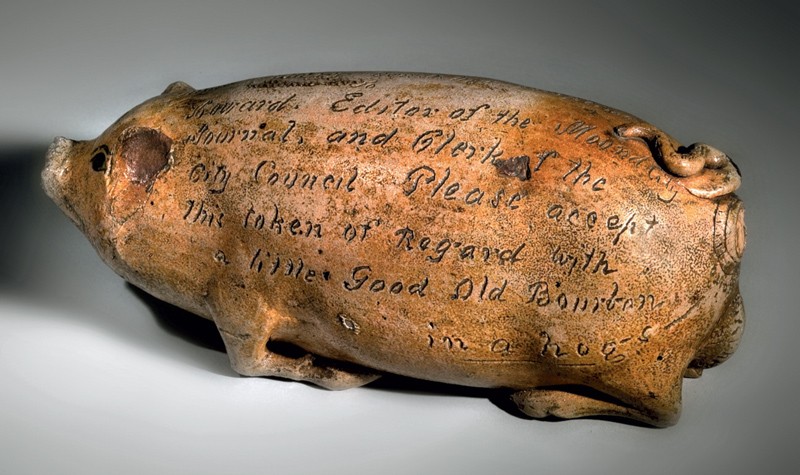 Editor of the Mound City
Journal, and Clerk of the
City Council Please accept
this token of Regard with
a little Good Old Bourbon
in a hogs